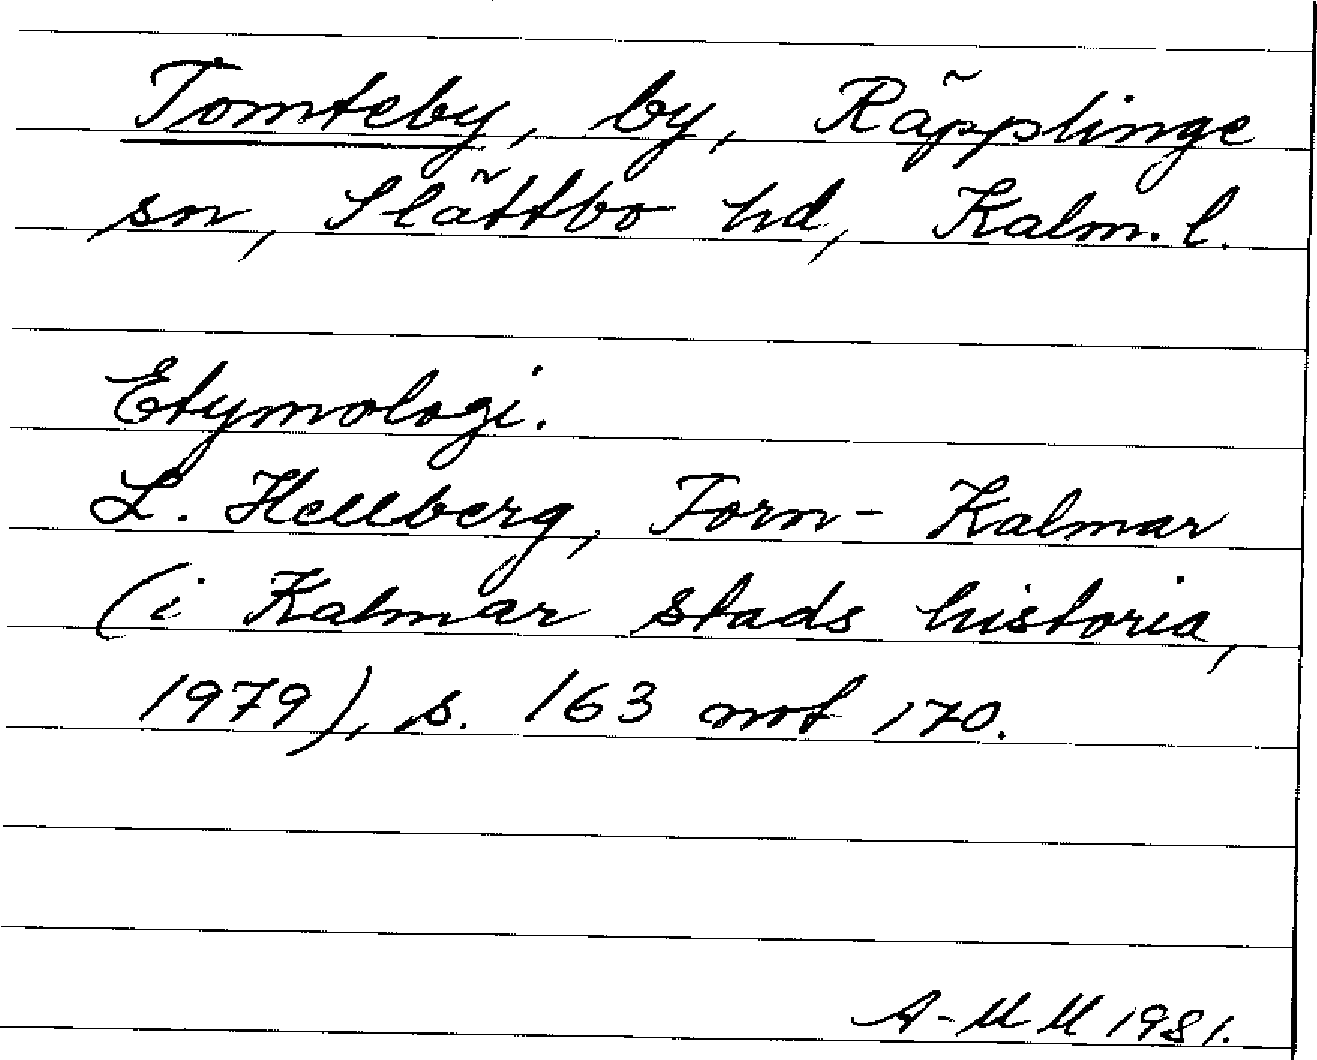 Tomteby, by, Räpplinge
sn, Slättbo hd, Kalm. l.
Etymologi.
L. Hellberg, Forn-Kalmar
(i Kalmar stads historia,
1979), s. 163 not 170.
A-MM 1981.